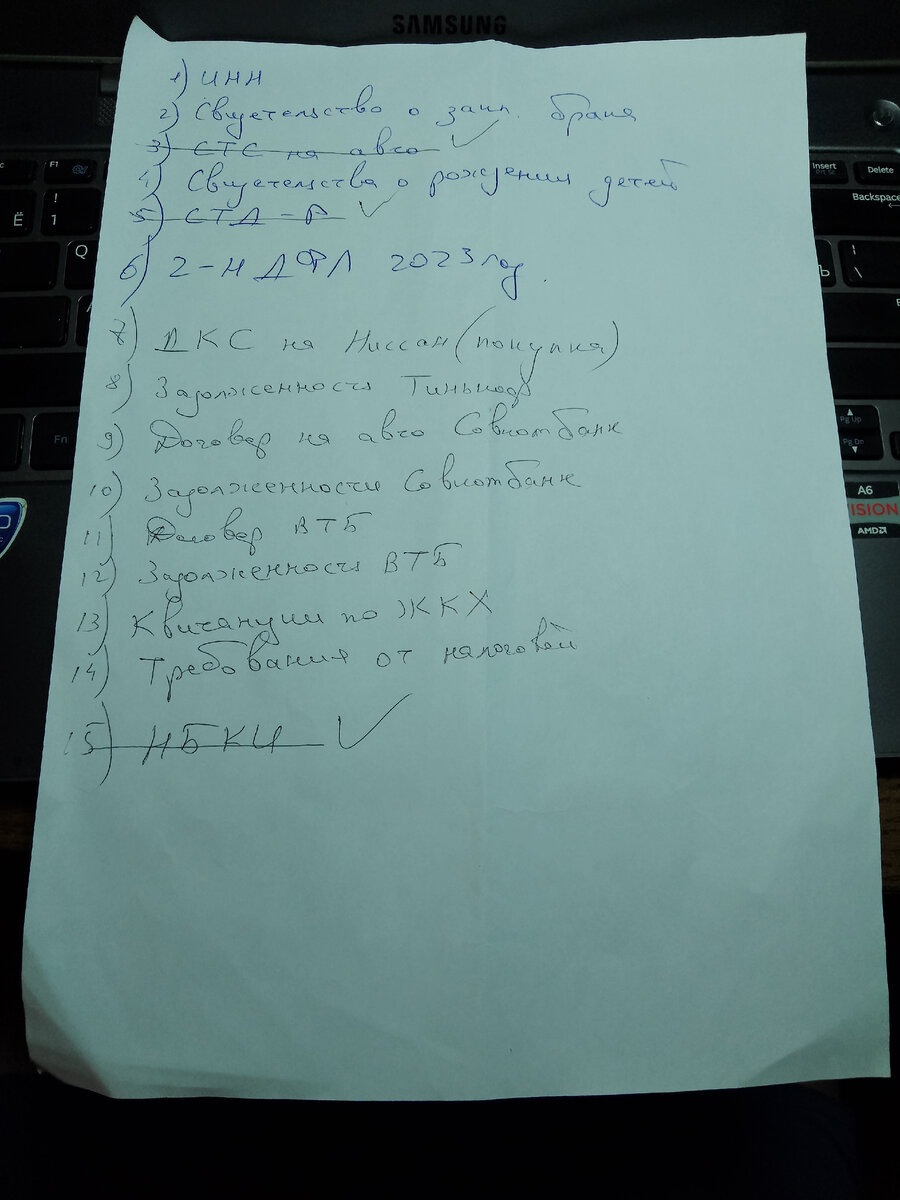 SAMSUNG
1) ИНН
2) Свидетельство о закл. брака
3) СТС на авто
4) Свидетельства о рождении детей
5) СТД-Р
6) 2-НДФЛ 2023 год.
7) ДКС на Ниссан (покупка)
8) Задолженность Тинькоф
9) Договор на авто Совкомбанк
10) Задолженности Совкомбанк
11) Договор ВТБ
12) Задолженность ВТБ
13) Квитанции по ЖКХ
14) Требования от налоговой
15) НБКИ
F1
Insert
Prt Sc
Delete
Ё
!
1
Backspace
Q
\
Ъ
Fn
Pg Up
Pg Dn
A6
VISION
AMD